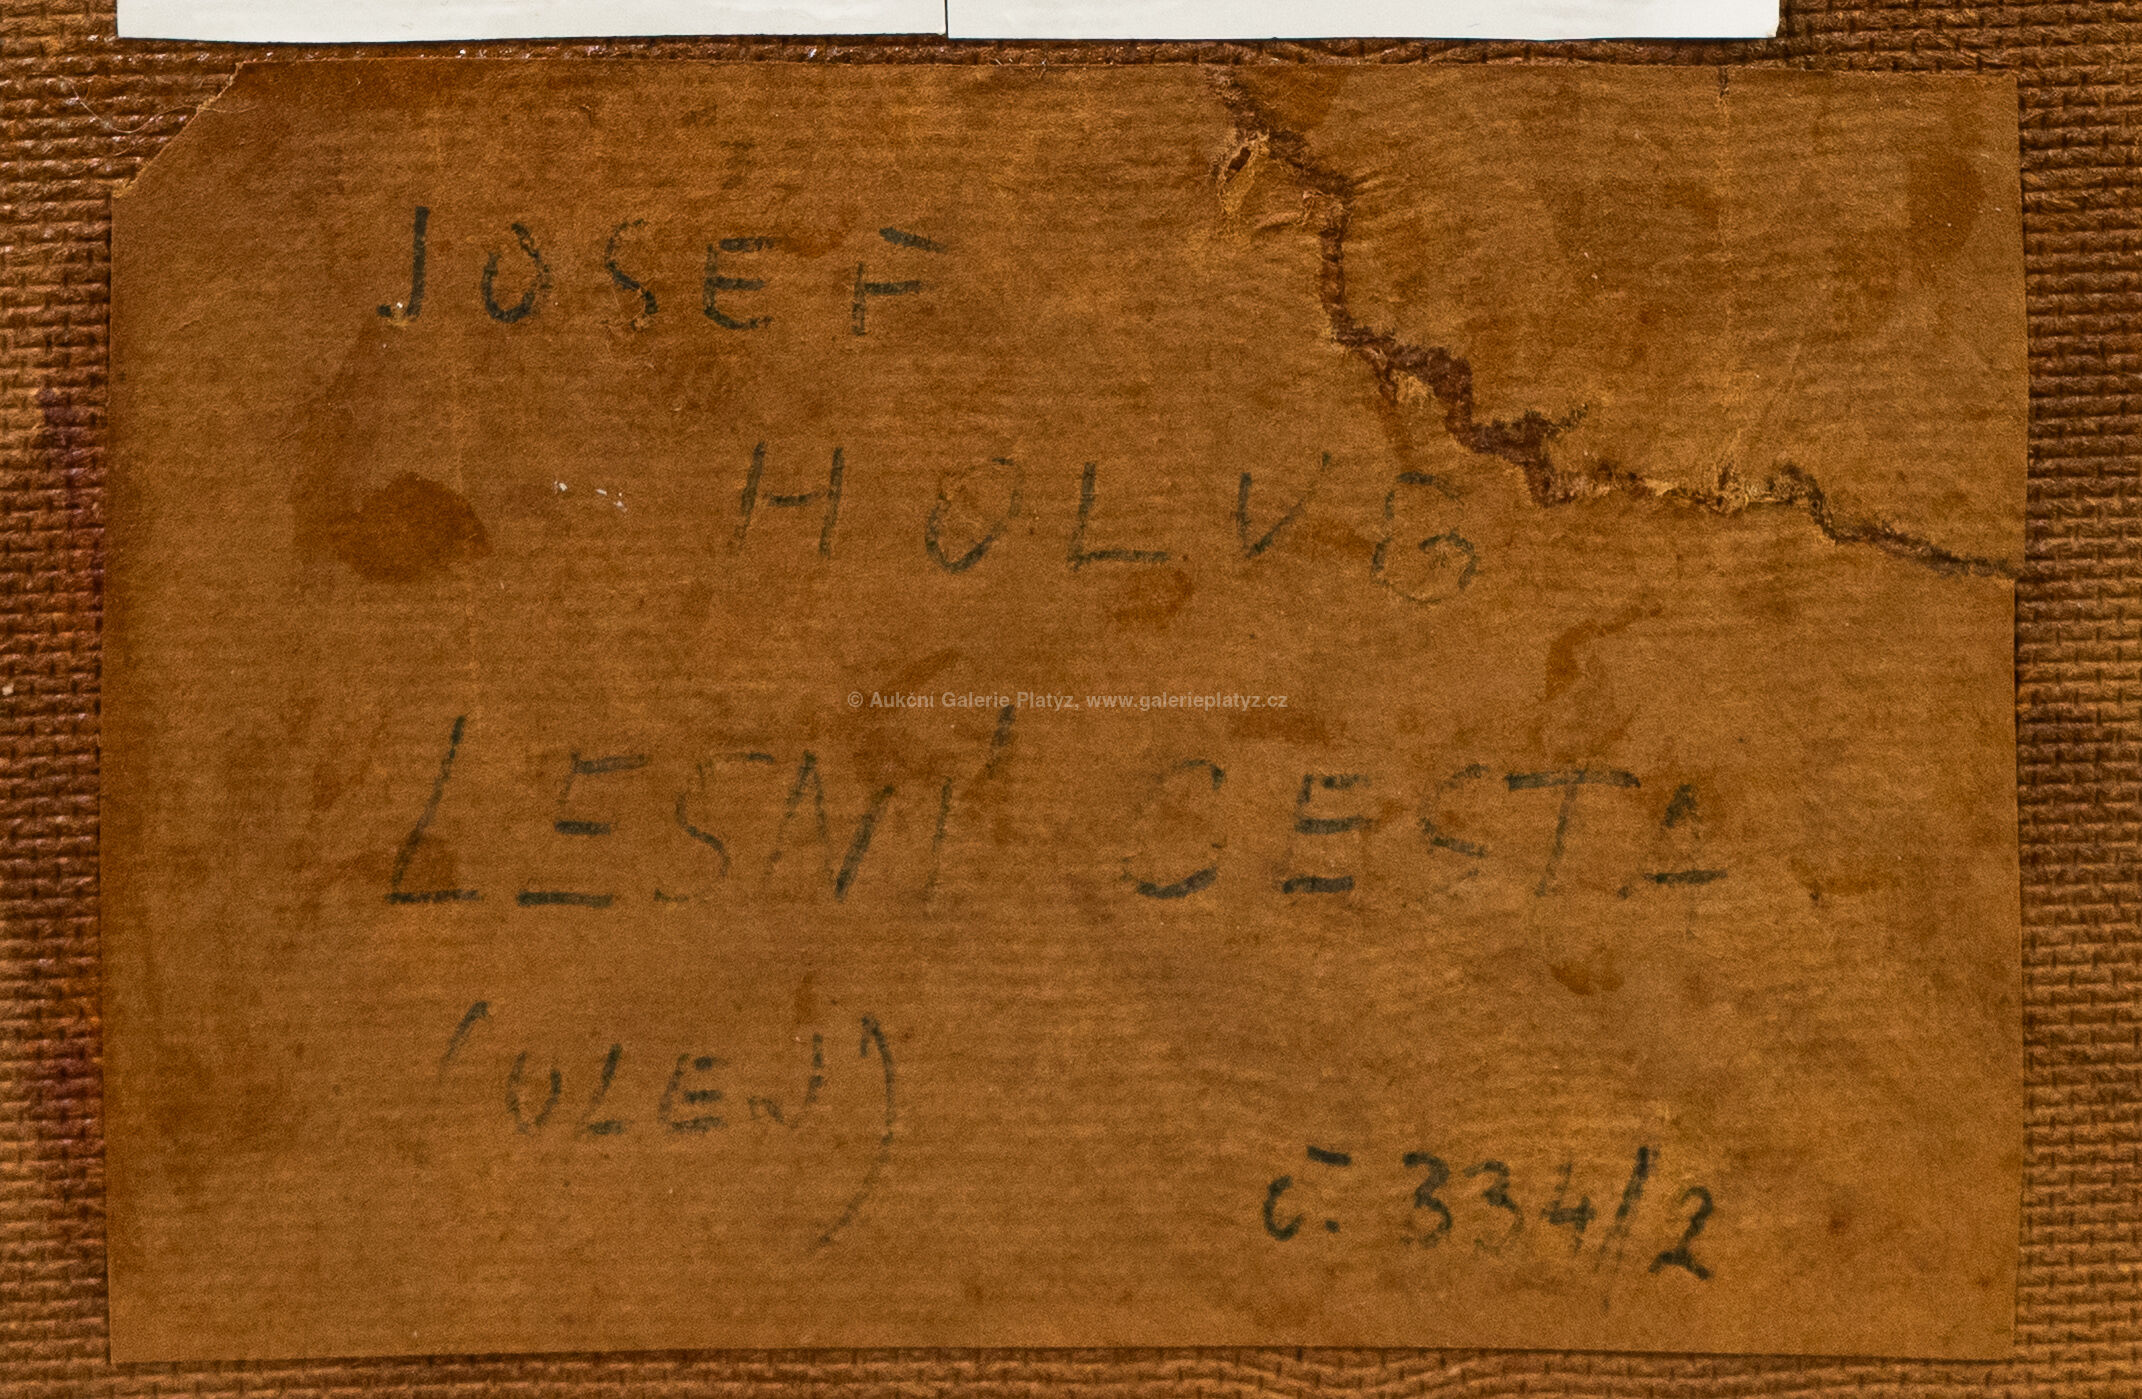 JOSEF
HOLUB
© Aukční Galerie Platýz, www.galerieplatyz.cz
LESNÍ CESTA
(OLEJ)
č. 334/2